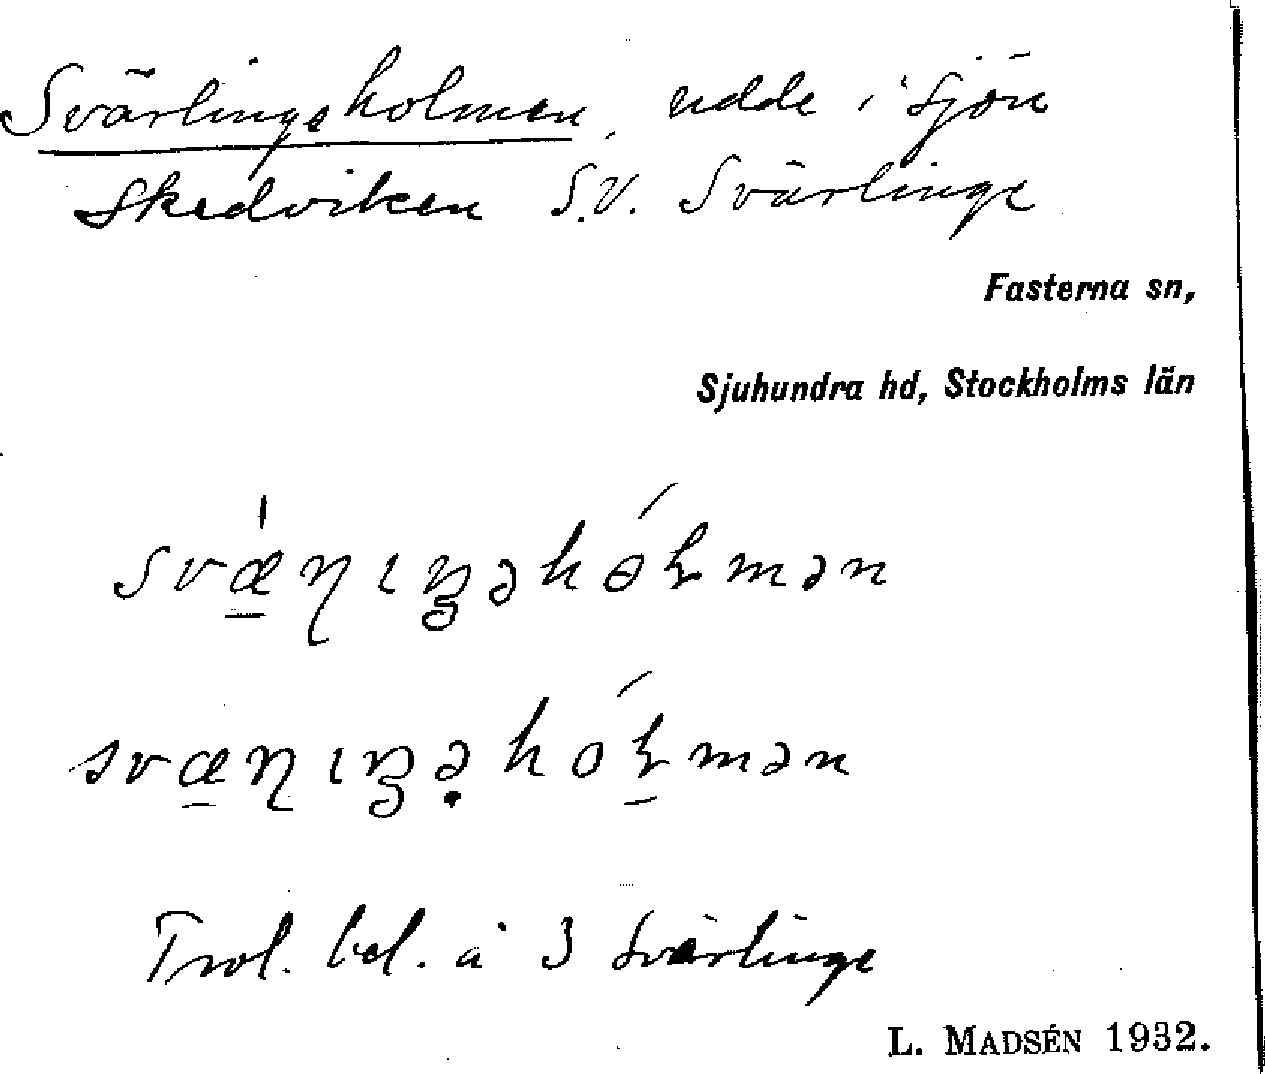 Svärlingeholmen, udde i sjön
Skedviken S.V. Svärlinge
Fasterna sn,
Sjuhundra hd, Stockholms län
svǽ̠ɳıŋəhóɫmən
svæ̠ɳıŋə̣hóɫ̠mən
Trol. bel. å 3 Svärlinge
L. MADSÉN 1932.